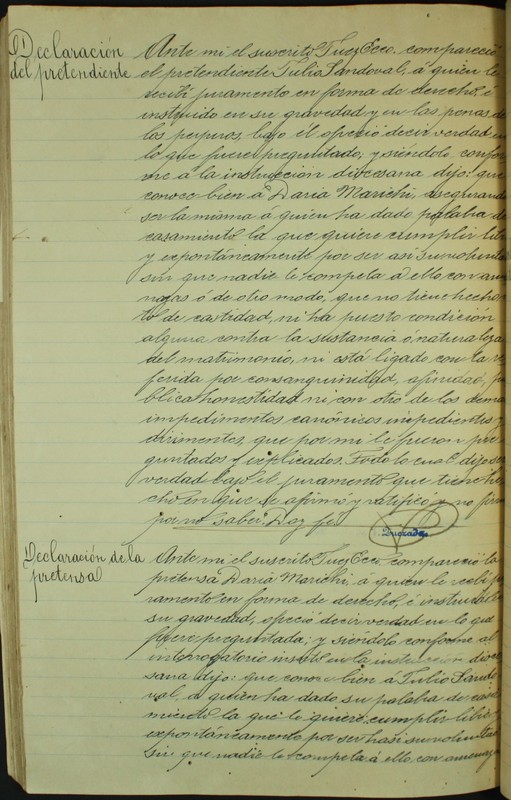 Declaración
del pretendiente
Ante mi el suscrito Juez Ecco. compareció
el pretendiente Tulio Sandoval, á quien le
recibí juramento en forma de derecho é
instruido en su gravedad y en las penas de
los perjuros, bajo él ofreció decir verdad en
lo que fuere preguntado; y siéndolo confor
me a la instrucción diocesana dijo: que
conoce bien á Daria Marichi, asegurando
ser la misma á quien ha dado palabra de
casamiento la que quiere cumplir libre
y expontáneamente por ser así su voluntad
sin que nadie le compela á ello con ame
nazas ó de otro modo, que no tiene hecho
to de castidad, ni ha puesto condición
alguna contra la sustancia ó naturaleza
del matrimonio, ni está ligado con la re
ferida por consanguinidad, afinidad, pú
blica honestidad ni con otro de los demas
impedimentos canónicos impedientes y
dirimentes, que por mi le fueron pre
guntados y explicados. Todo lo cual dijo ser
verdad bajo el juramento que tiene he
cho en que se afirmó y ratificó y no firma
por no saber. Doy fe
Declaración de la
pretensa
Ante mi el suscrito Juez Ecco. compareció la
pretensa Daria Marichi á quien le recibí ju
ramento en forma de derecho, é instruida
su gravedad, ofreció decir verdad en lo que
fuere preguntada; y siéndolo conforme al
interrogatorio inserto en la instrucción dioce
sana dijo: que conoce bien á Tulio Sando
val, á quien ha dado su palabra de casa
miento la que le quiere cumplir libre y
expontaneamente por ser hasi su voluntad
sin que nadie le compela á ello con amenazas